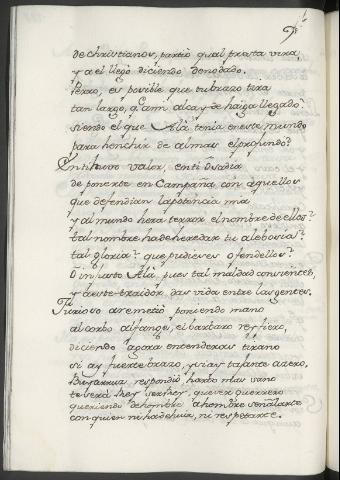 de christianos, partio qual presta vira,
y a el llegó diciendo denodado.
Perro, es posible que tu brazo tira
tan largo, q. ami alcayde haiga llegado?
siendo el que Alà tenia en este mundo
para henchir de almas el profundo?
En ti huvo valor, en ti osadia
de ponerte en Campaña con aquellos
que defendian la potencia mia
y al mundo hera terror el nombre de ellos?
tal nombre ha de heredar tu alebosia?
tal gloria? que pudieses ofendellos?
O injusto Alà, pues tal maldad consientes,
y a este traidor das vida entre las gentes.
Furioso aremetió poniendo mano
al corbo alfange, el barbaro rey fiero,
diciendo agora entenderas tirano
si ay fuerte brazo, y si ay tajante azero,
respondió harto mas sano
te verà Rey que ser guerrero
queriendo de hombre a hombre señalarte
con quien ni ha de huir, ni respetarte.